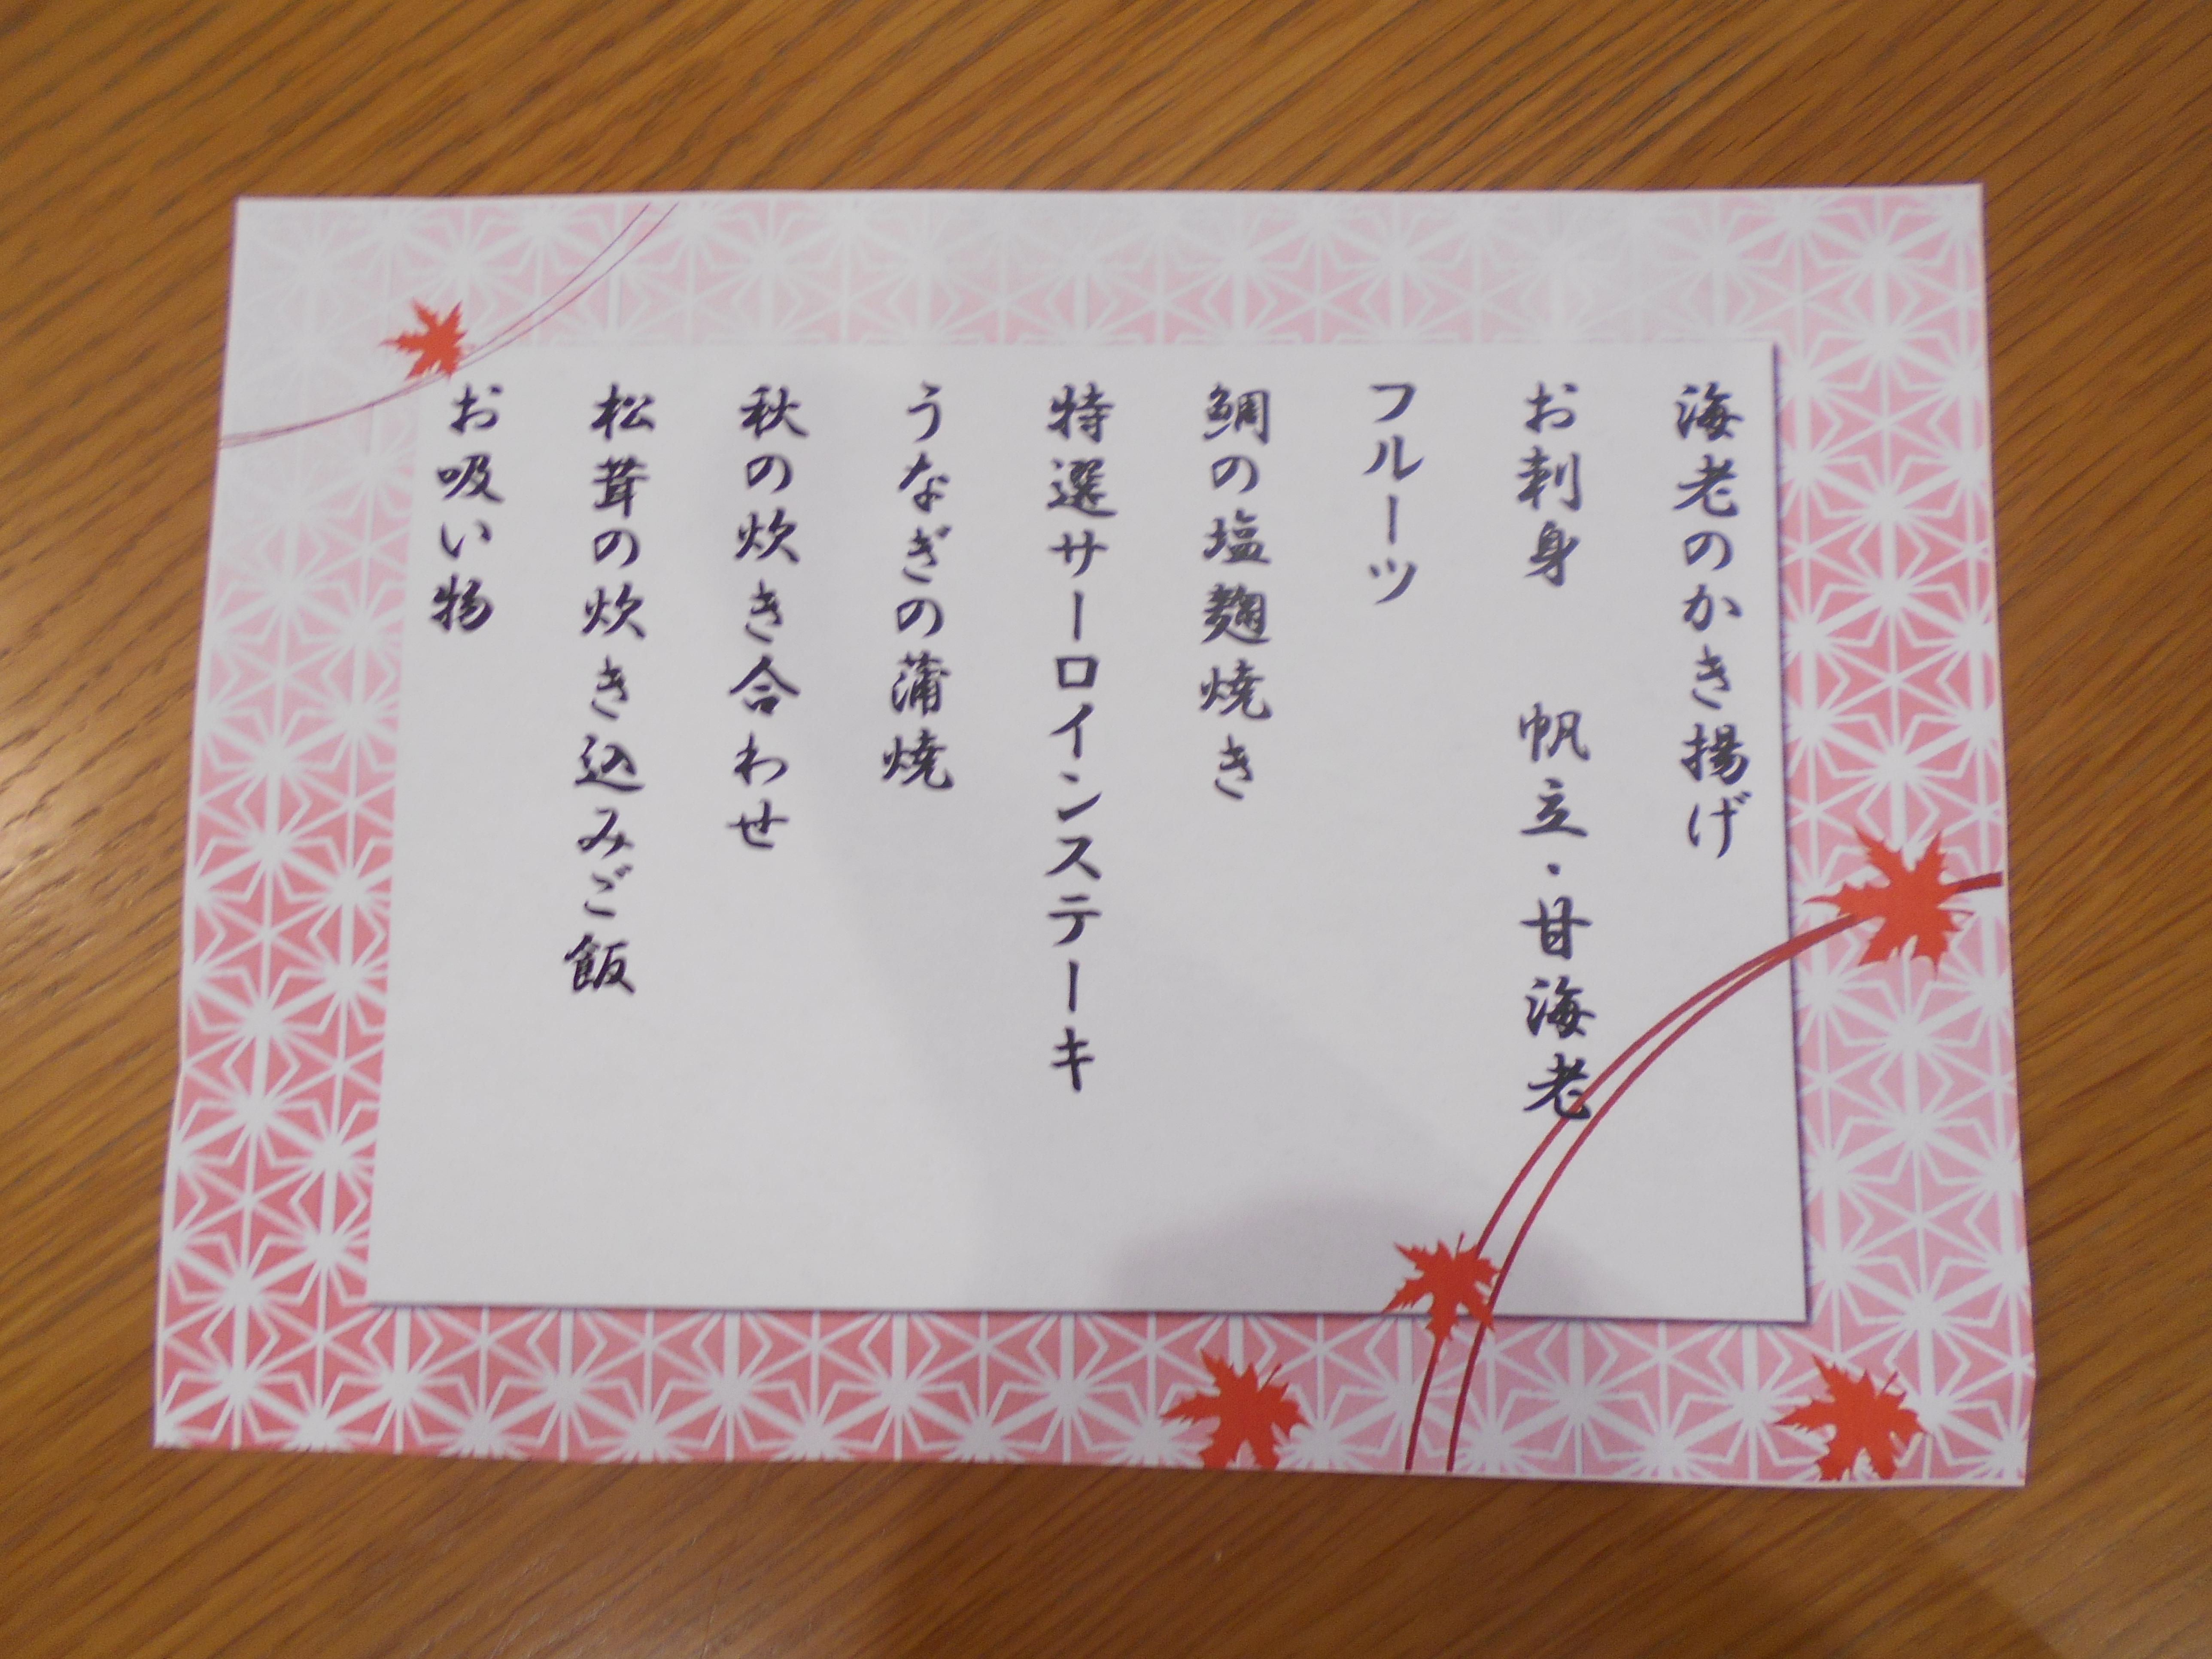 海老のかき揚げ
お刺身　帆立・甘海老
フルーツ
鯛の塩麹焼き
特選サーロインステーキ
うなぎの蒲焼
秋の炊き合わせ
松茸の炊き込みご飯
お吸い物